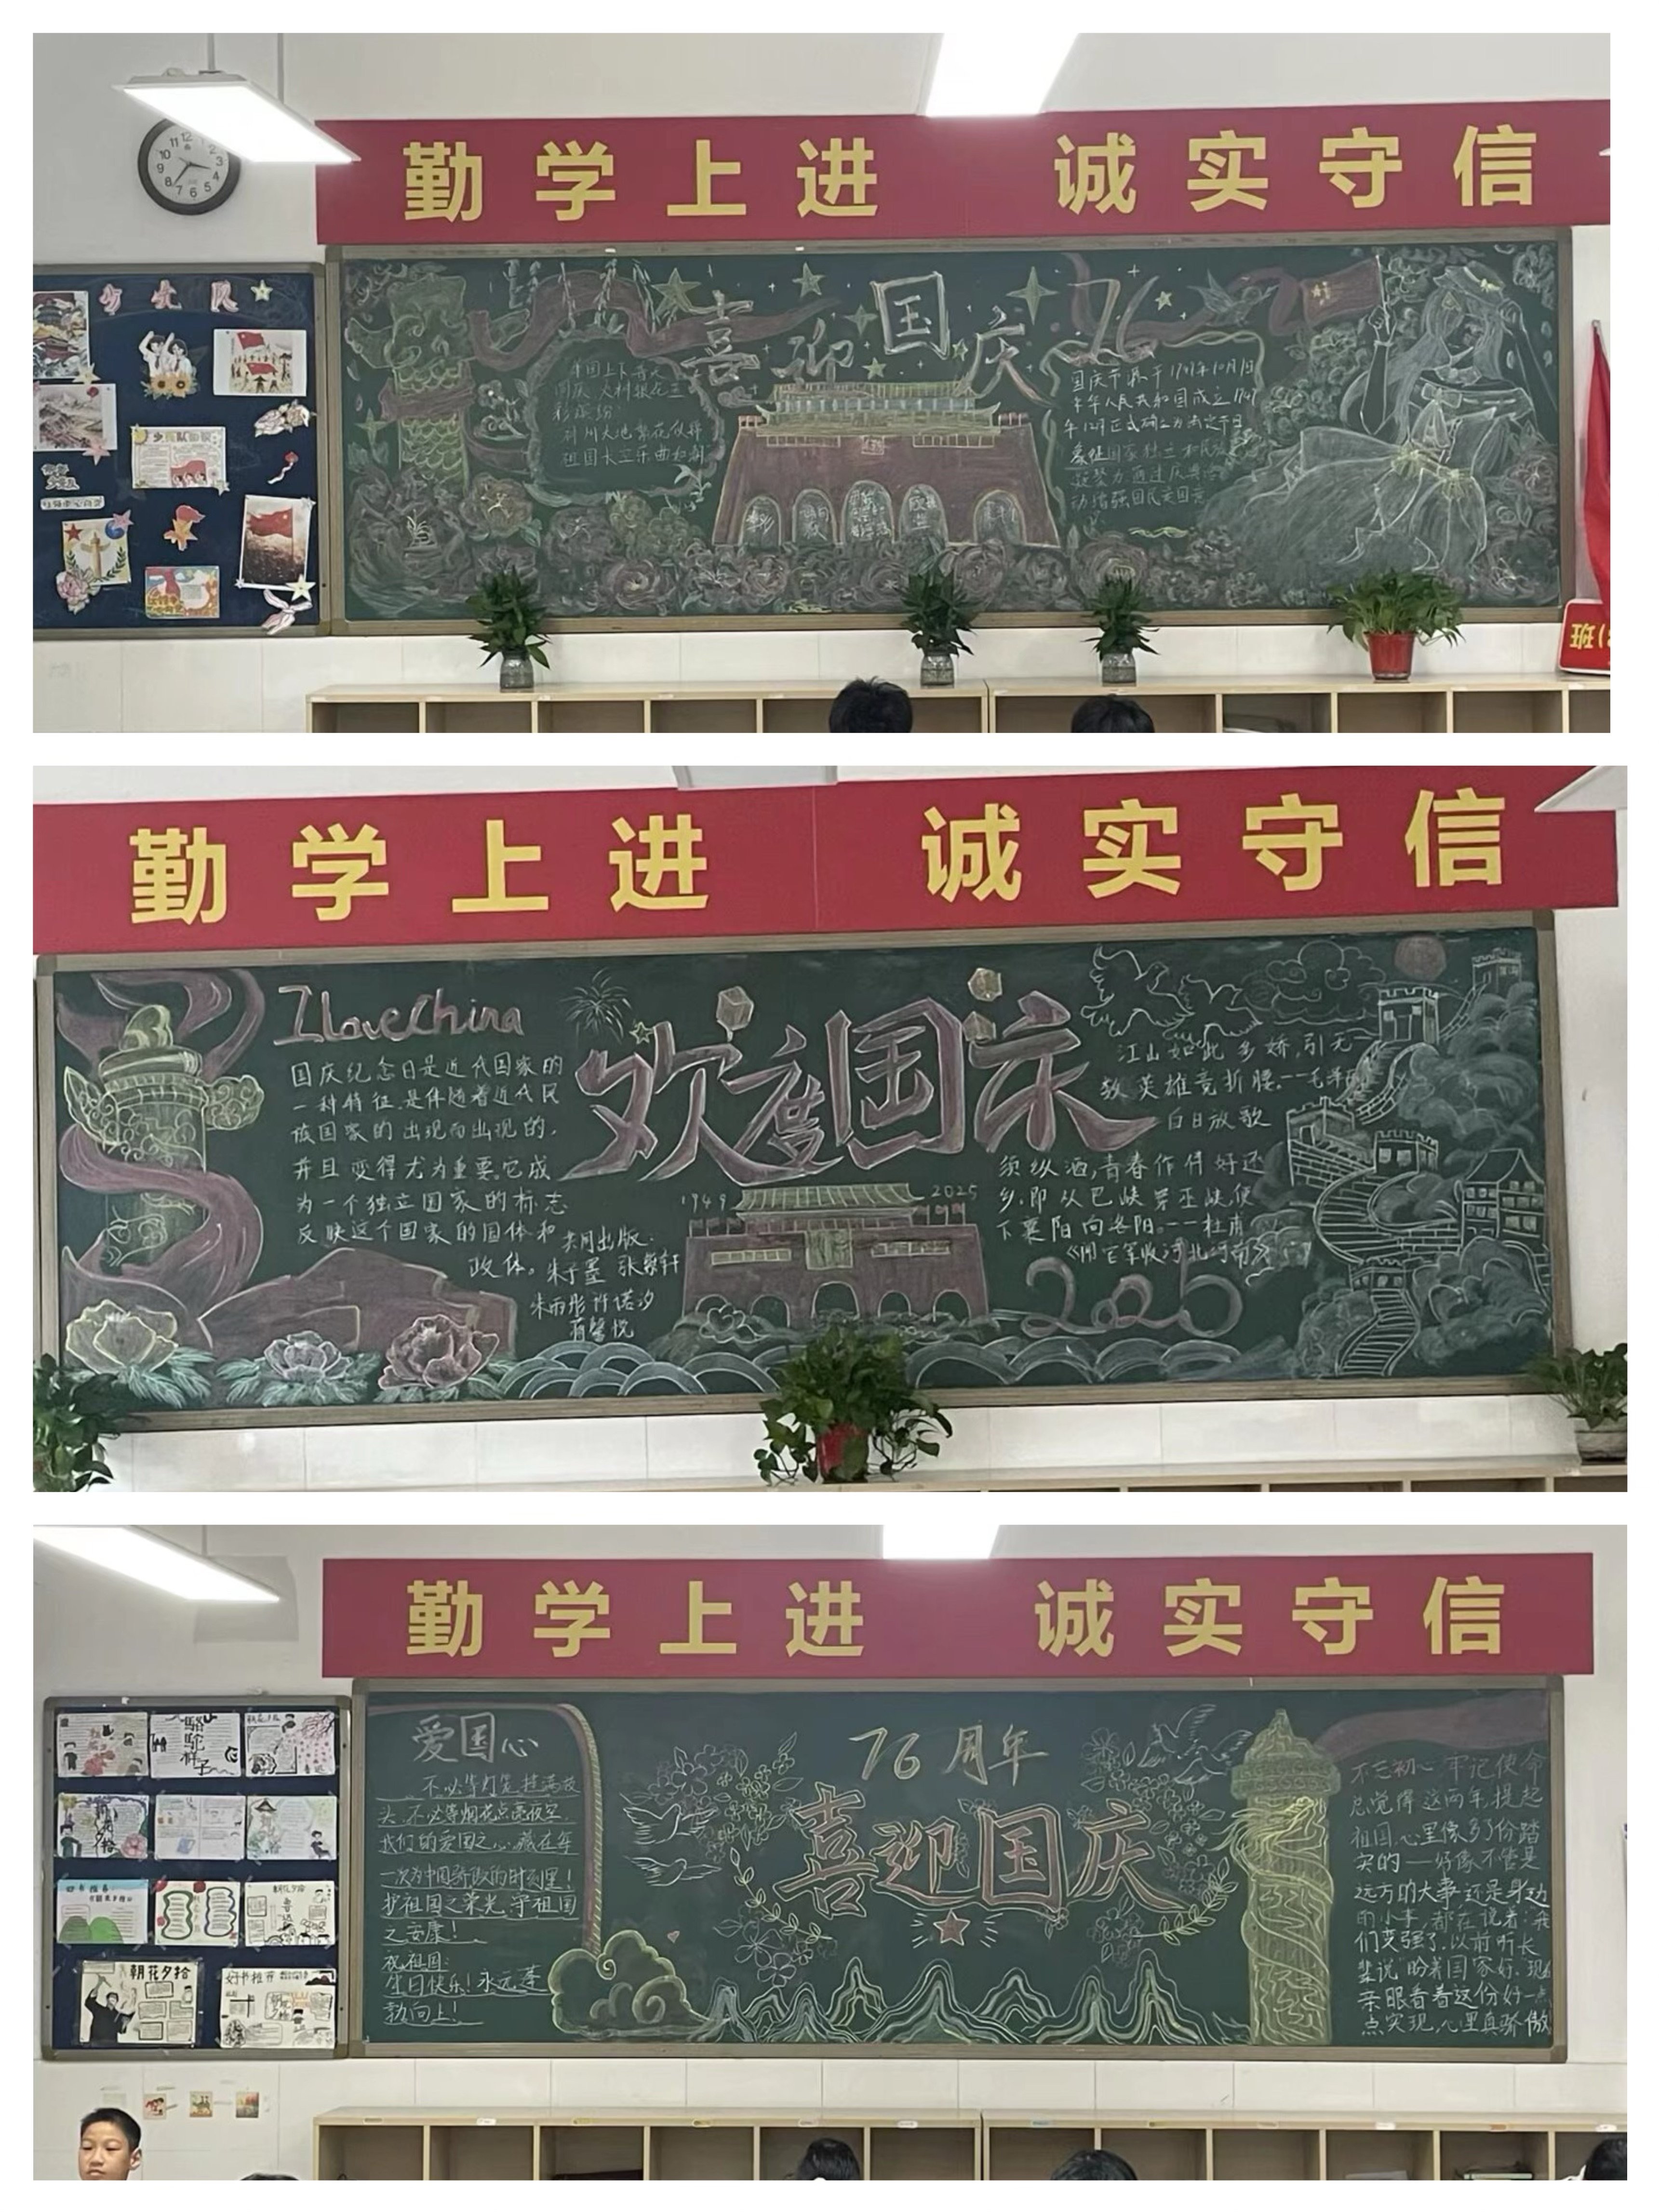 勤学上进 诚实守信
少先队
喜迎国庆
76
国庆 火树银花三
神州大地繁花似锦
祖国长空乐曲和谐
国庆节源于1949年10月1日
中华人民共和国成立1949
年12月正式确立为法定节日
象征国家独立和民族
凝聚力 通过庆典活
动增强国民爱国意
勤学上进 诚实守信
I Love China
国庆纪念日是近代国家的
一种特征,是伴随着近代民
族国家的出现而出现的,
并且变得尤为重要。它成
为一个独立国家的标志
反映这个国家的国体和
政体。
共同出版:
朱雨彤 许诺汐
欢度国庆
1949 2025
江山如此多娇,引无
数英雄竞折腰。——毛泽东
白日放歌
须纵酒,青春作伴好还
乡。即从巴峡穿巫峡,便
下襄阳向洛阳。——杜甫
《闻官军收河北河南》
2025
勤学上进 诚实守信
骆驼祥子
好书推荐
朝花夕拾
好书推荐
爱国心
不必等灯笼挂满枝
头,不必等烟花点亮夜空
我们的爱国之心,藏在每
一次为中国骄傲的时刻里!
护祖国之荣光,守祖国
之安康!
祝祖国:
生日快乐!永远蓬
勃向上!
76周年
喜迎国庆
不忘初心 牢记使命
总觉得这两年,提起
祖国,心里像多了份踏
实的——好像不管是
远方的大事还是身边
的小事,都在说着:我
们变强了。以前听长
辈说盼着国家好,现在
亲眼看着这份好一点
点实现,心里真骄傲